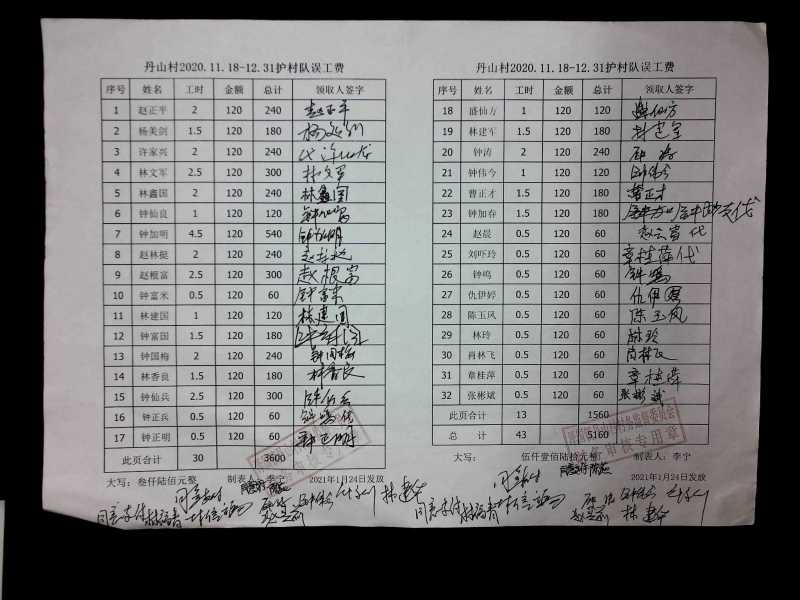 丹山村2020.11.18-12.31护村队误工费
序号 姓名 工时 金额 总计 领取人签字
1 赵正平 2 120 240 赵正平
2 杨美剑 1.5 120 180
3 许家兴 2 120 240
4 林文军 2.5 120 300 林文军
5 林鑫国 2 120 240 林鑫国
6 钟仙良 1 120 120
7 钟加明 4.5 120 540 钟加明
8 赵林挺 2 120 240 赵林挺
9 赵根富 2.5 120 300 赵根富
10 钟富米 0.5 120 60 钟富米
11 林建国 1 120 120 林建国
12 钟富国 1.5 120 180
13 钟国梅 2 120 240 钟国梅
14 林香良 1.5 120 180 林香良
15 钟仙兵 2.5 120 300
16 钟正兵 0.5 120 60
17 钟正明 0.5 120 60 钟正明
此页合计 30 3600
大写: 叁仟陆佰元整 制表人: 李宁 2021年1月24日发放
同意支付
丹山村2020.11.18-12.31护村队误工费
序号 姓名 工时 金额 总计 领取人签字
18 盛仙方 1 120 120 盛仙方
19 林建军 1.5 120 180
20 钟涛 2 120 240
21 钟伟今 1 120 120
22 曹正才 1.5 120 180 曹正才
23 钟加春 1.5 120 180
24 赵晨 0.5 120 60 赵云富代
25 刘吓玲 0.5 120 60 章桂萍代
26 钟鸣 0.5 120 60 钟鸣
27 仇伊婷 0.5 120 60
28 陈玉风 0.5 120 60 陈玉风
29 林玲 0.5 120 60
30 肖林飞 0.5 120 60 肖林飞
31 章桂萍 0.5 120 60 章桂萍
32 张彬斌 0.5 120 60 张彬斌
此页合计 13 1560
总 计 43 5160
大写: 伍仟壹佰陆拾元整 制表人: 李宁
2021年1月24日发放
同意支付